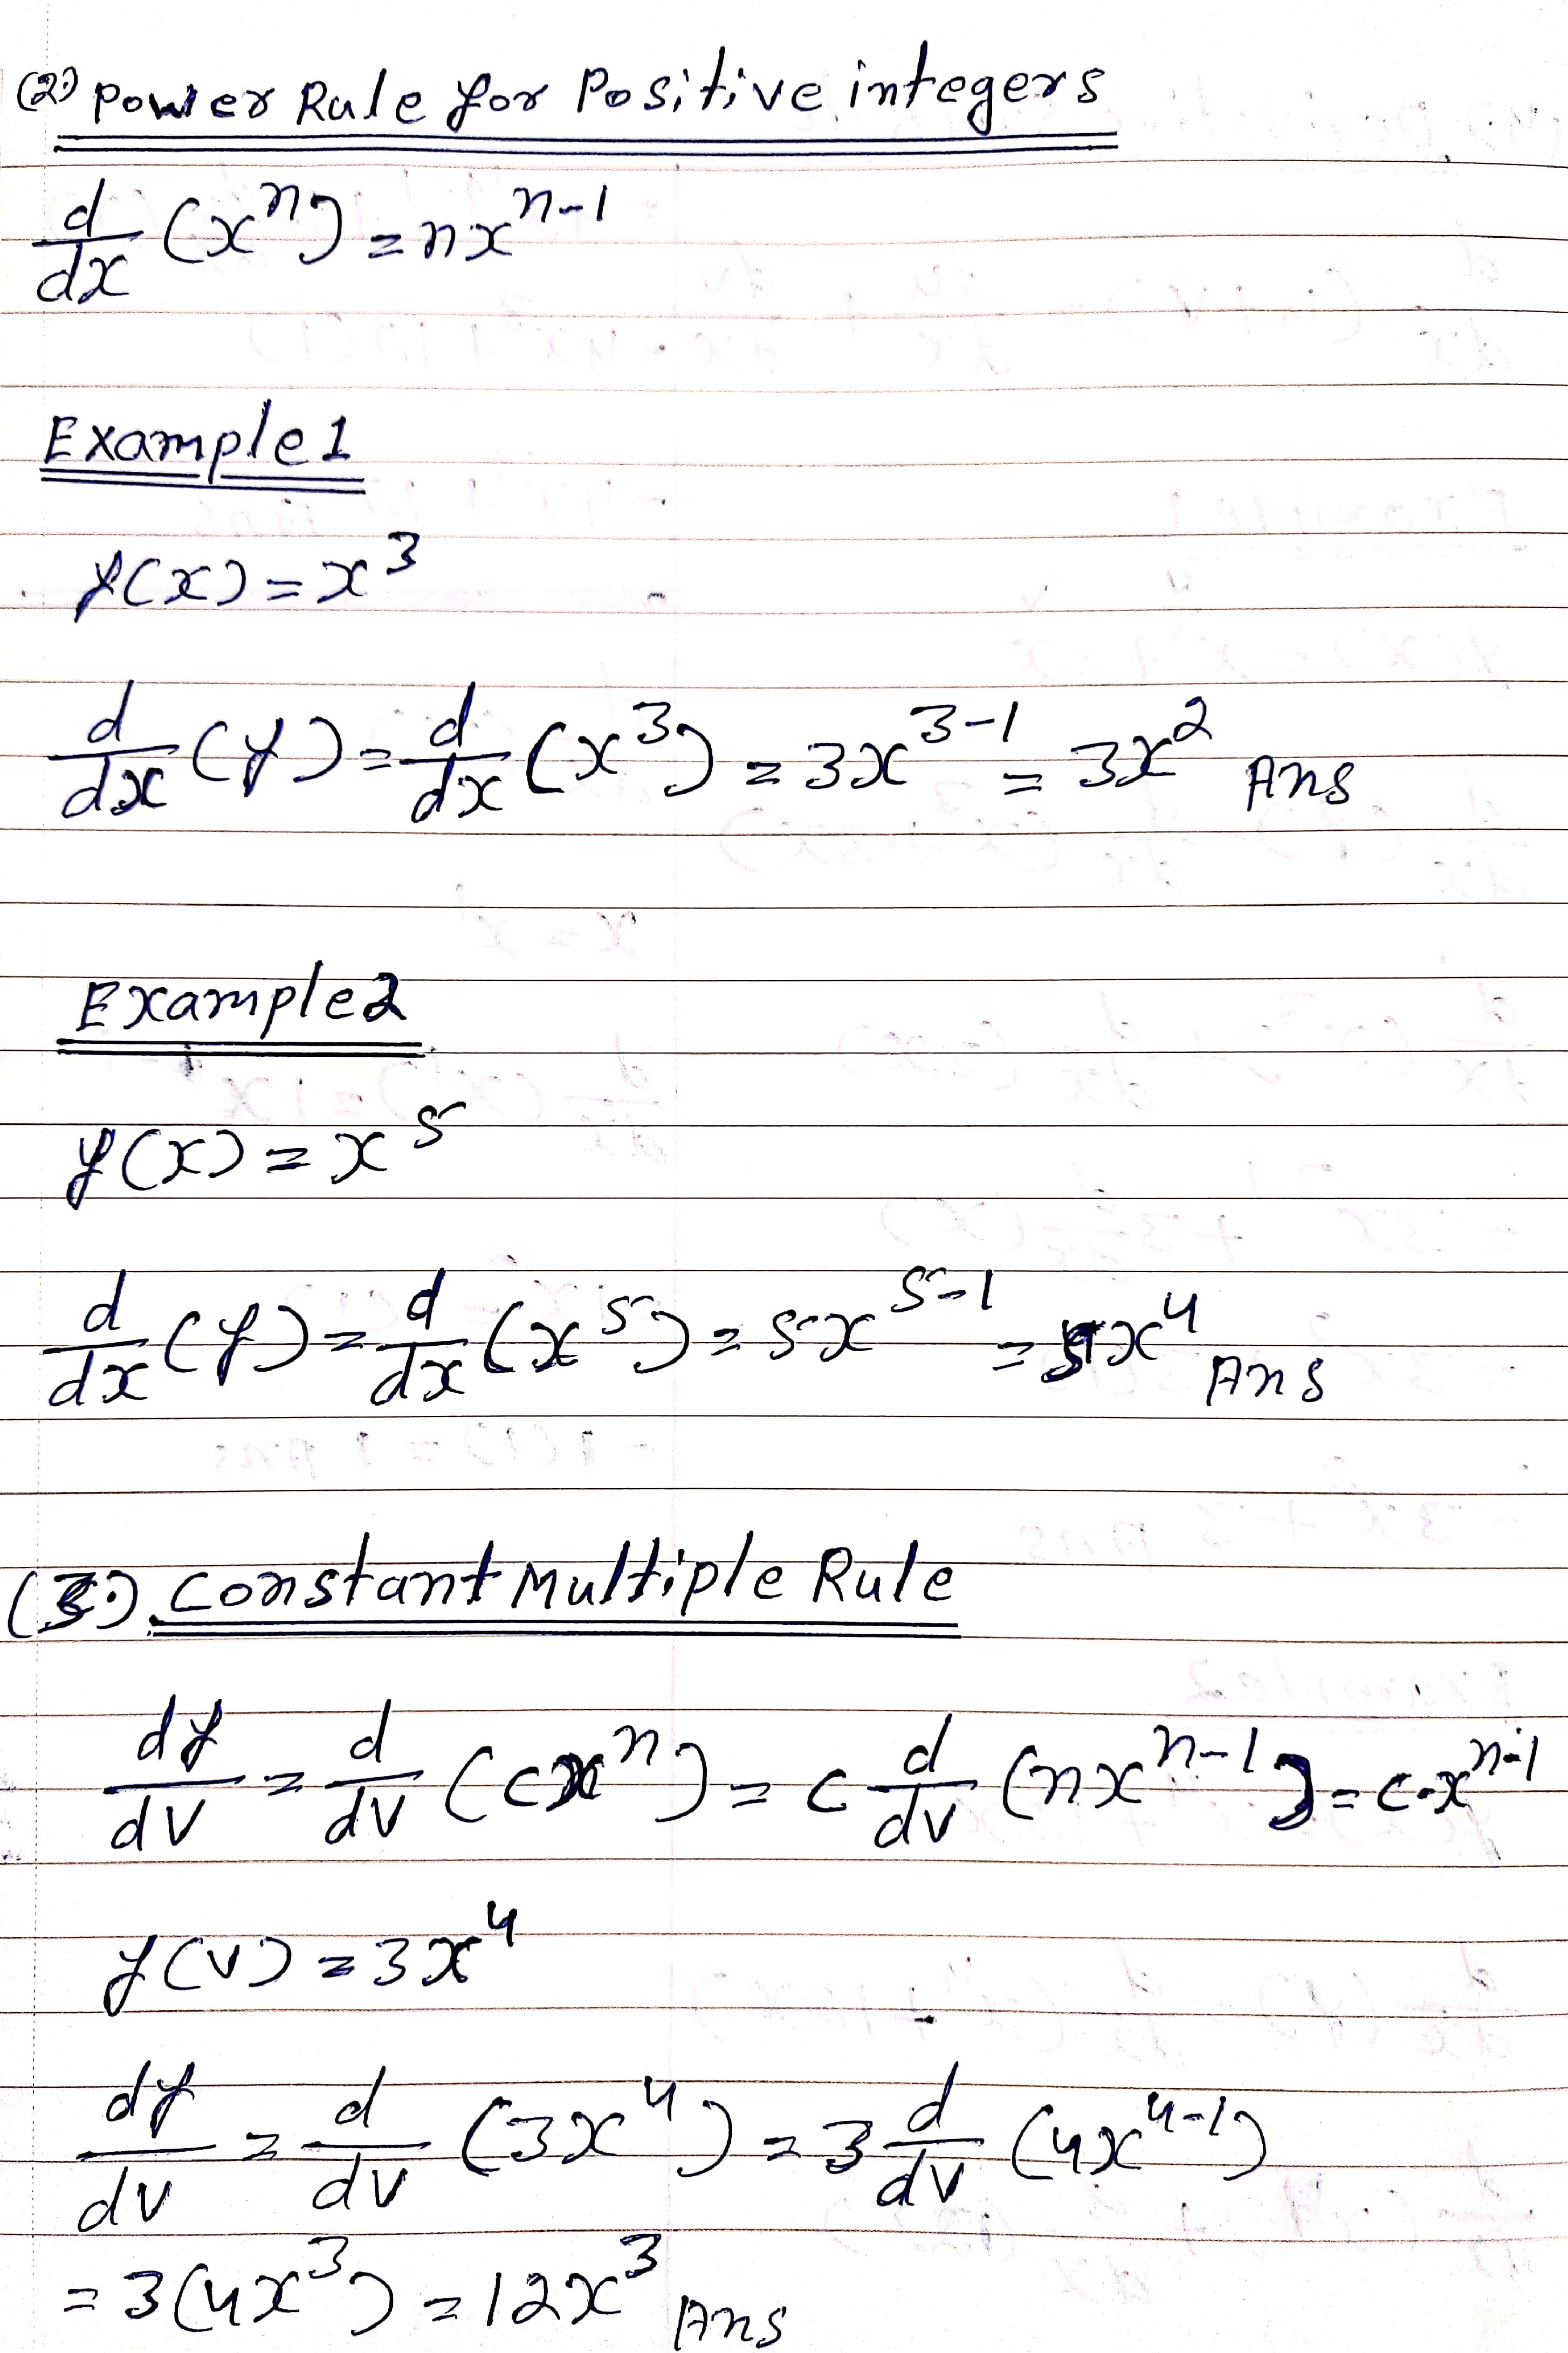 (2) Power Rule for Positive integers
d/dx (x^n) = nx^(n-1)
Example 1
f(x) = x^3
d/dx (f) = d/dx (x^3) = 3x^(3-1) = 3x^2 Ans
Example 2
f(x) = x^5
d/dx (f) = d/dx (x^5) = 5x^(5-1) = 5x^4 Ans
(3.) Constant Multiple Rule
df/dv = d/dv (cx^n) = c d/dv (nx^(n-1)) = c·x^(n-1)
f(v) = 3x^4
df/dv = d/dv (3x^4) = 3 d/dv (4x^(4-1))
= 3(4x^3) = 12x^3 Ans